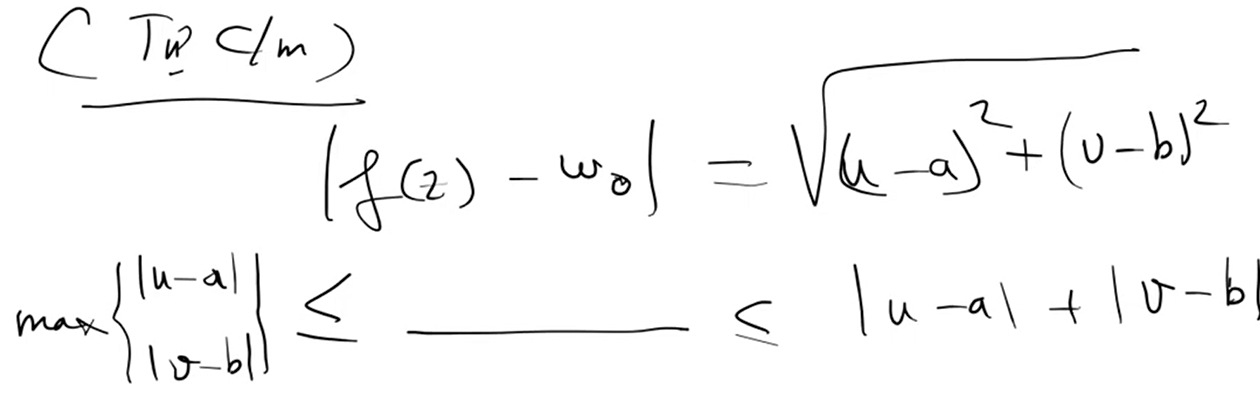 ( Tự C/m )
|f(z) - w₀| = √((u-a)² + (v-b)²)
max{|u-a|, |v-b|} ≤ ______ ≤ |u-a| + |v-b|